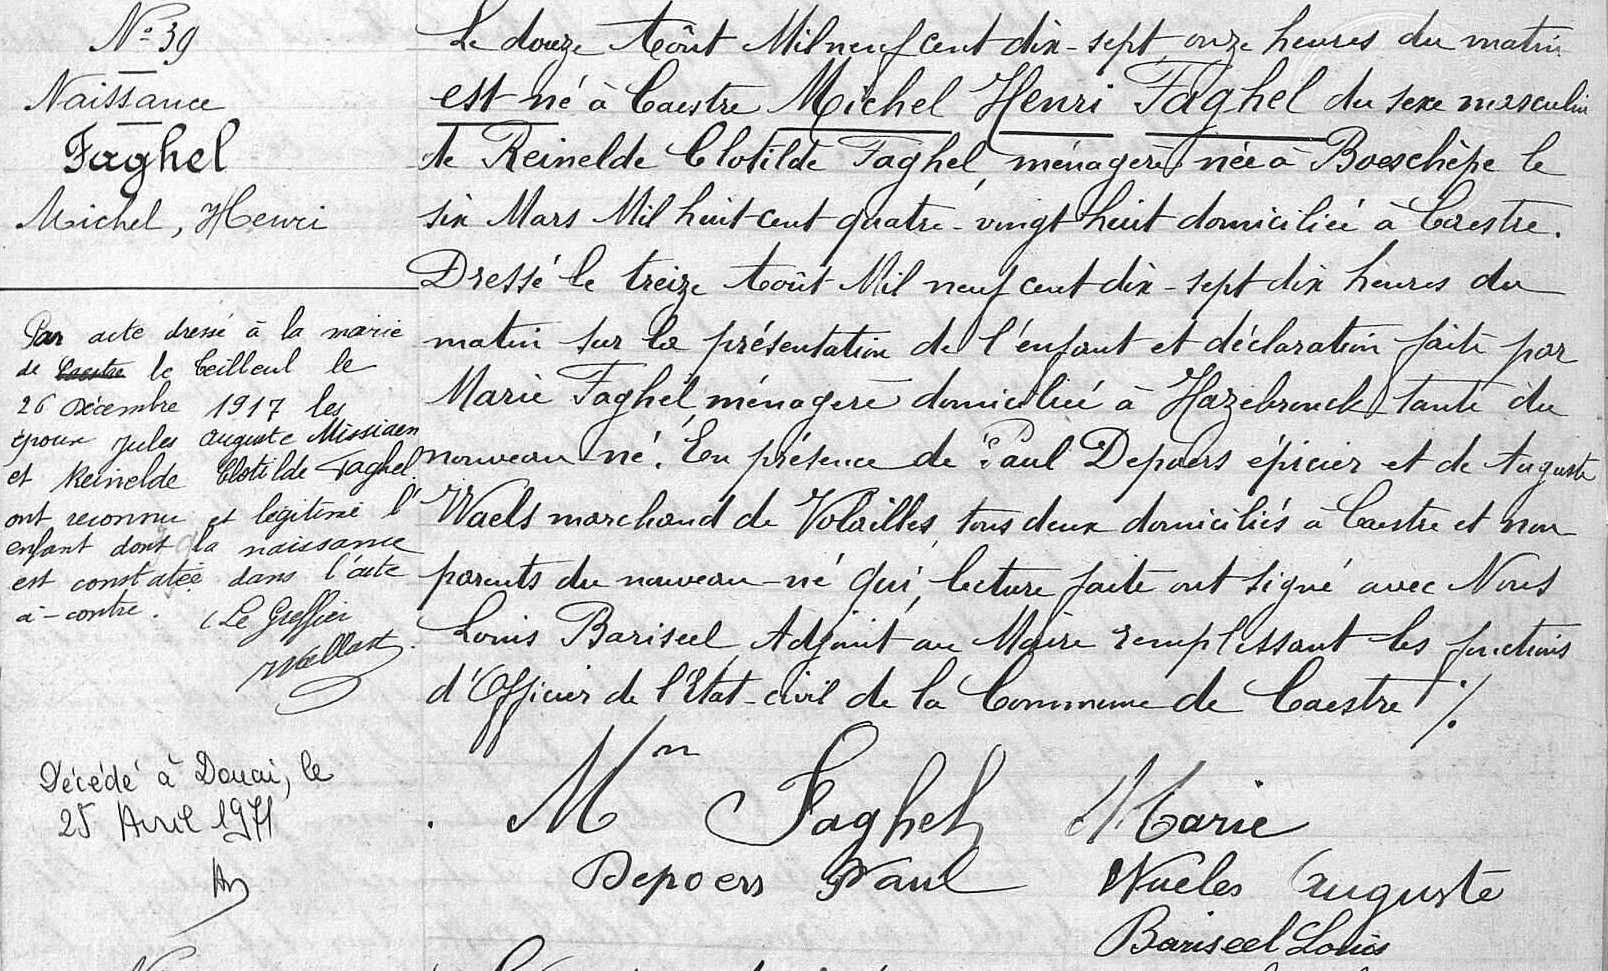 N° 39
Naissance
Faghel
Michel, Henri
Par acte dressé à la mairie
de Caestre le Teilleul le
26 Décembre 1917 les
époux Jules Auguste Missiaen
et Reinelde Clotilde Faghel
ont reconnu et légitimé l'
enfant dont la naissance
est constatée dans l'acte
ci-contre. Le Greffier
Décédé à Douai, le
25 Avril 1971
Le douze Août Mil neuf cent dix-sept onze heures du matin
est né à Caestre Michel Henri Faghel du sexe masculin
de Reinelde Clotilde Faghel, ménagère née à Boeschèpe le
six Mars Mil huit cent quatre-vingt huit domiciliée à Caestre.
Dressé le treize Août Mil neuf cent dix-sept dix heures du
matin sur la présentation de l'enfant et déclaration faite par
Marie Faghel, ménagère domiciliée à Hazebrouck, tante du
nouveau né. En présence de Paul Depoers épicier et de Auguste
Waels marchand de Volailles, tous deux domiciliés à Caestre et non
parents du nouveau-né qui, lecture faite ont signé avec Nous
Louis Bariseel, Adjoint au Maire remplissant les fonctions
d'Officier de l'Etat-civil de la Commune de Caestre ./.
Mn Faghel Marie
Depoers Paul Waeles Auguste
Bariseel Louis